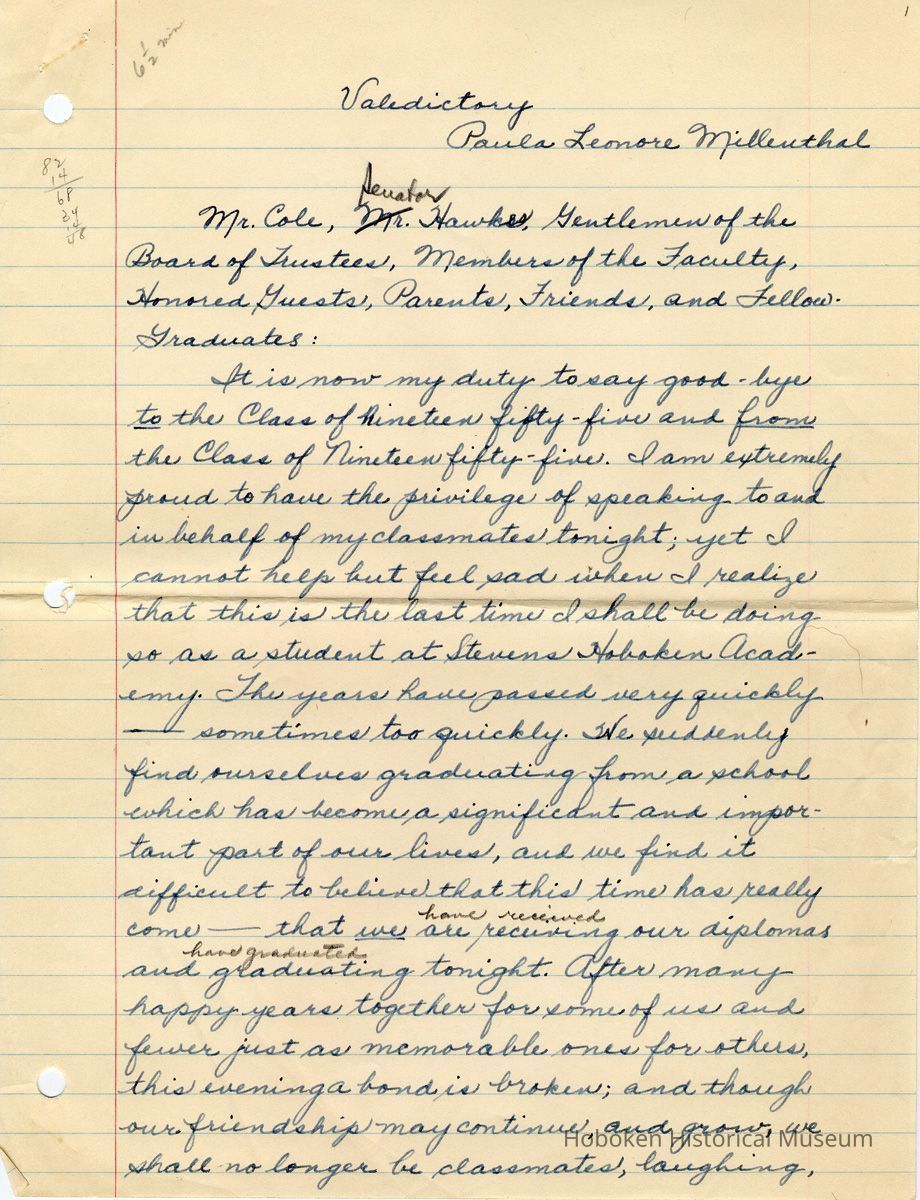 1
6 1/2 min
Valedictory
Paula Leonore Millenthal
82
14
68
24
Senator
Mr. Cole, Mr. Hawkes, Gentlemen of the
Board of Trustees, Members of the Faculty,
Honored Guests, Parents, Friends, and Fellow-
Graduates:
It is now my duty to say good-bye
to the Class of Nineteen fifty-five and from
the Class of Nineteen fifty-five. I am extremely
proud to have the privilege of speaking to and
in behalf of my classmates tonight; yet I
cannot help but feel sad when I realize
that this is the last time I shall be doing
so as a student at Stevens Hoboken Acad-
emy. The years have passed very quickly
— sometimes too quickly. We suddenly
find ourselves graduating from a school
which has become a significant and impor-
tant part of our lives, and we find it
difficult to believe that this time has really
have received
come — that we are receiving our diplomas
have graduated
and graduating tonight. After many
happy years together for some of us and
fewer just as memorable ones for others,
this evening a bond is broken; and though
our friendship may continue, and grow, we
shall no longer be classmates, laughing,
Hoboken Historical Museum